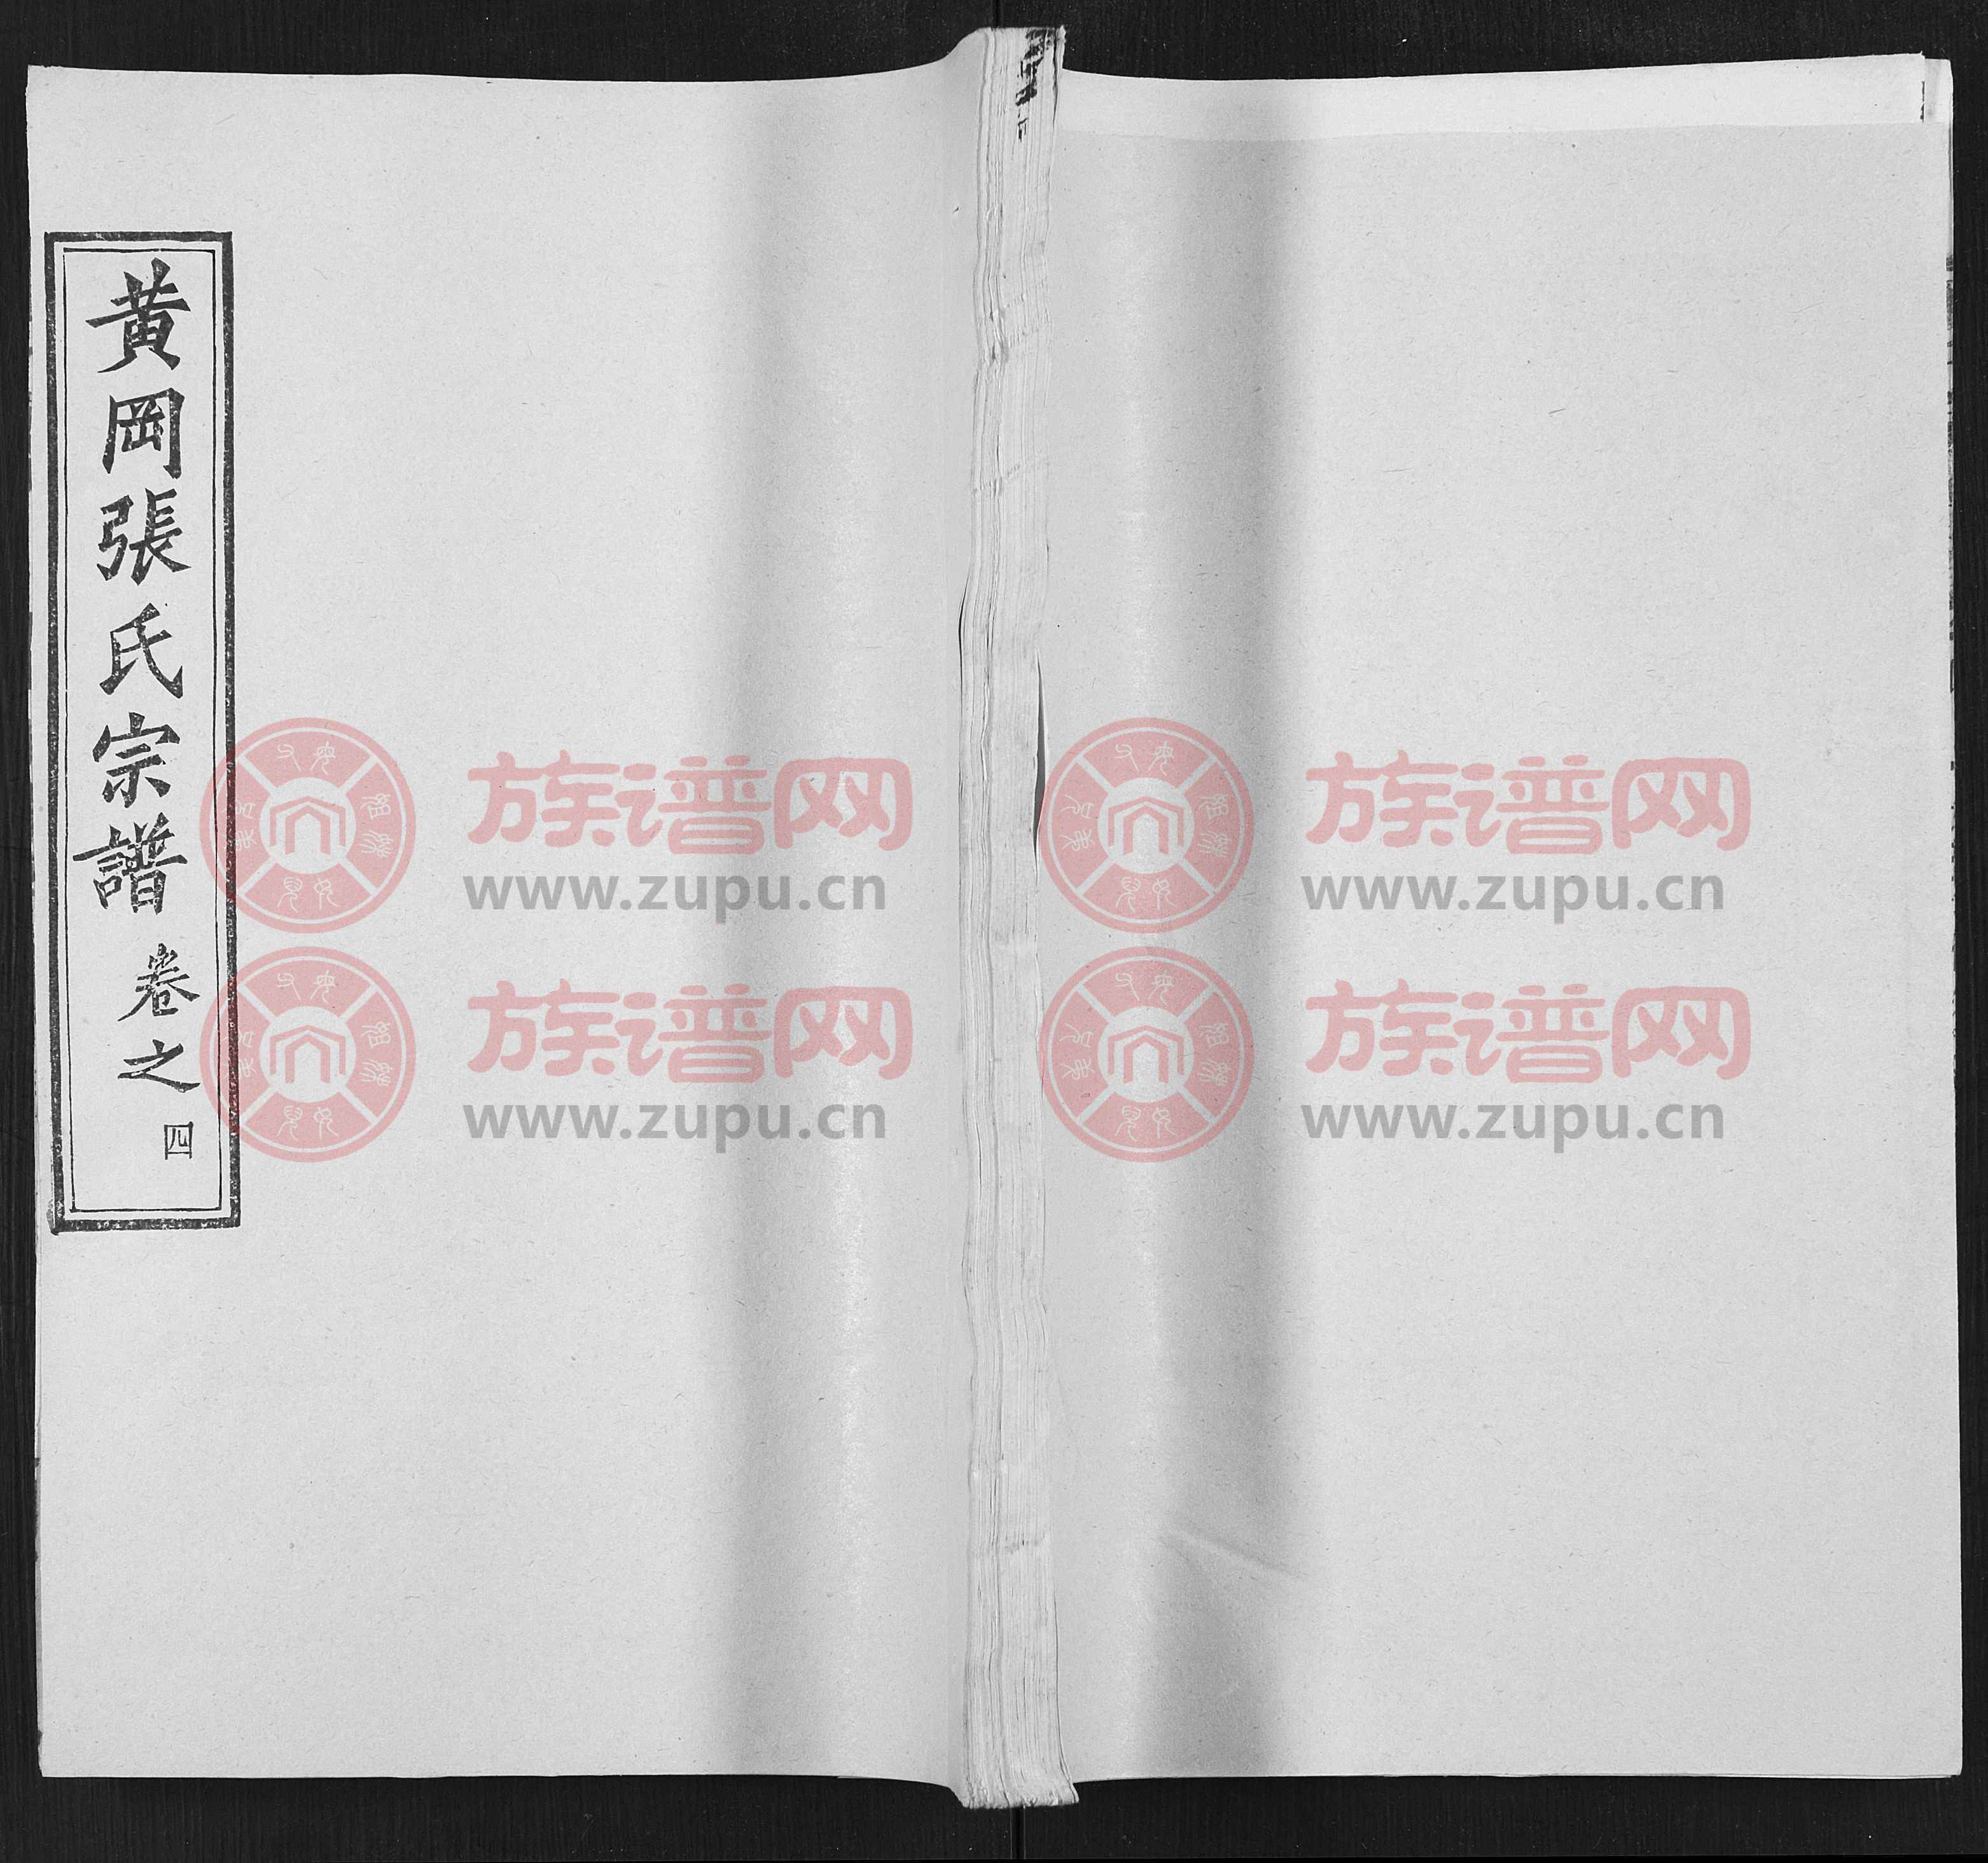 黃岡張氏宗譜 卷之四
族谱网 族谱网
www.zupu.cn www.zupu.cn
族谱网 族谱网
www.zupu.cn www.zupu.cn